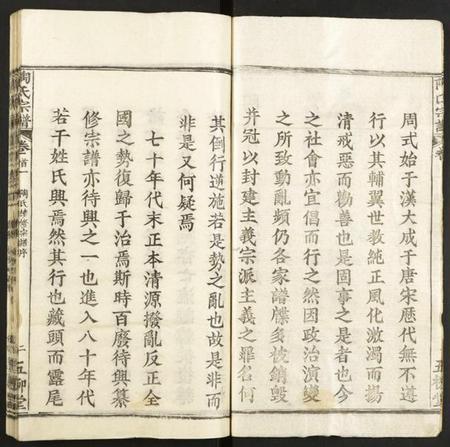 周式始于漢大成于唐宋歷代無不遵
行以其輔翼世教純正風化激濁而揚
清戒惡而勸善也是固事之是者也今
之社會亦宜倡而行之然因政治演變
之所致動亂頻仍各家譜牒多被銷毀
并冠以封建主義宗派主義之罪名何
其倒行逆施若是勢之亂也故是非而
非是又何疑焉
七十年代末正本清源撥亂反正全
國之勢復歸于治焉斯時百廢待興纂
修宗譜亦待興之一也進入八十年代
若干姓氏興焉然其行也藏頭而露尾
陶氏宗譜 卷首一 陶氏續修宗譜序 二 五柳堂